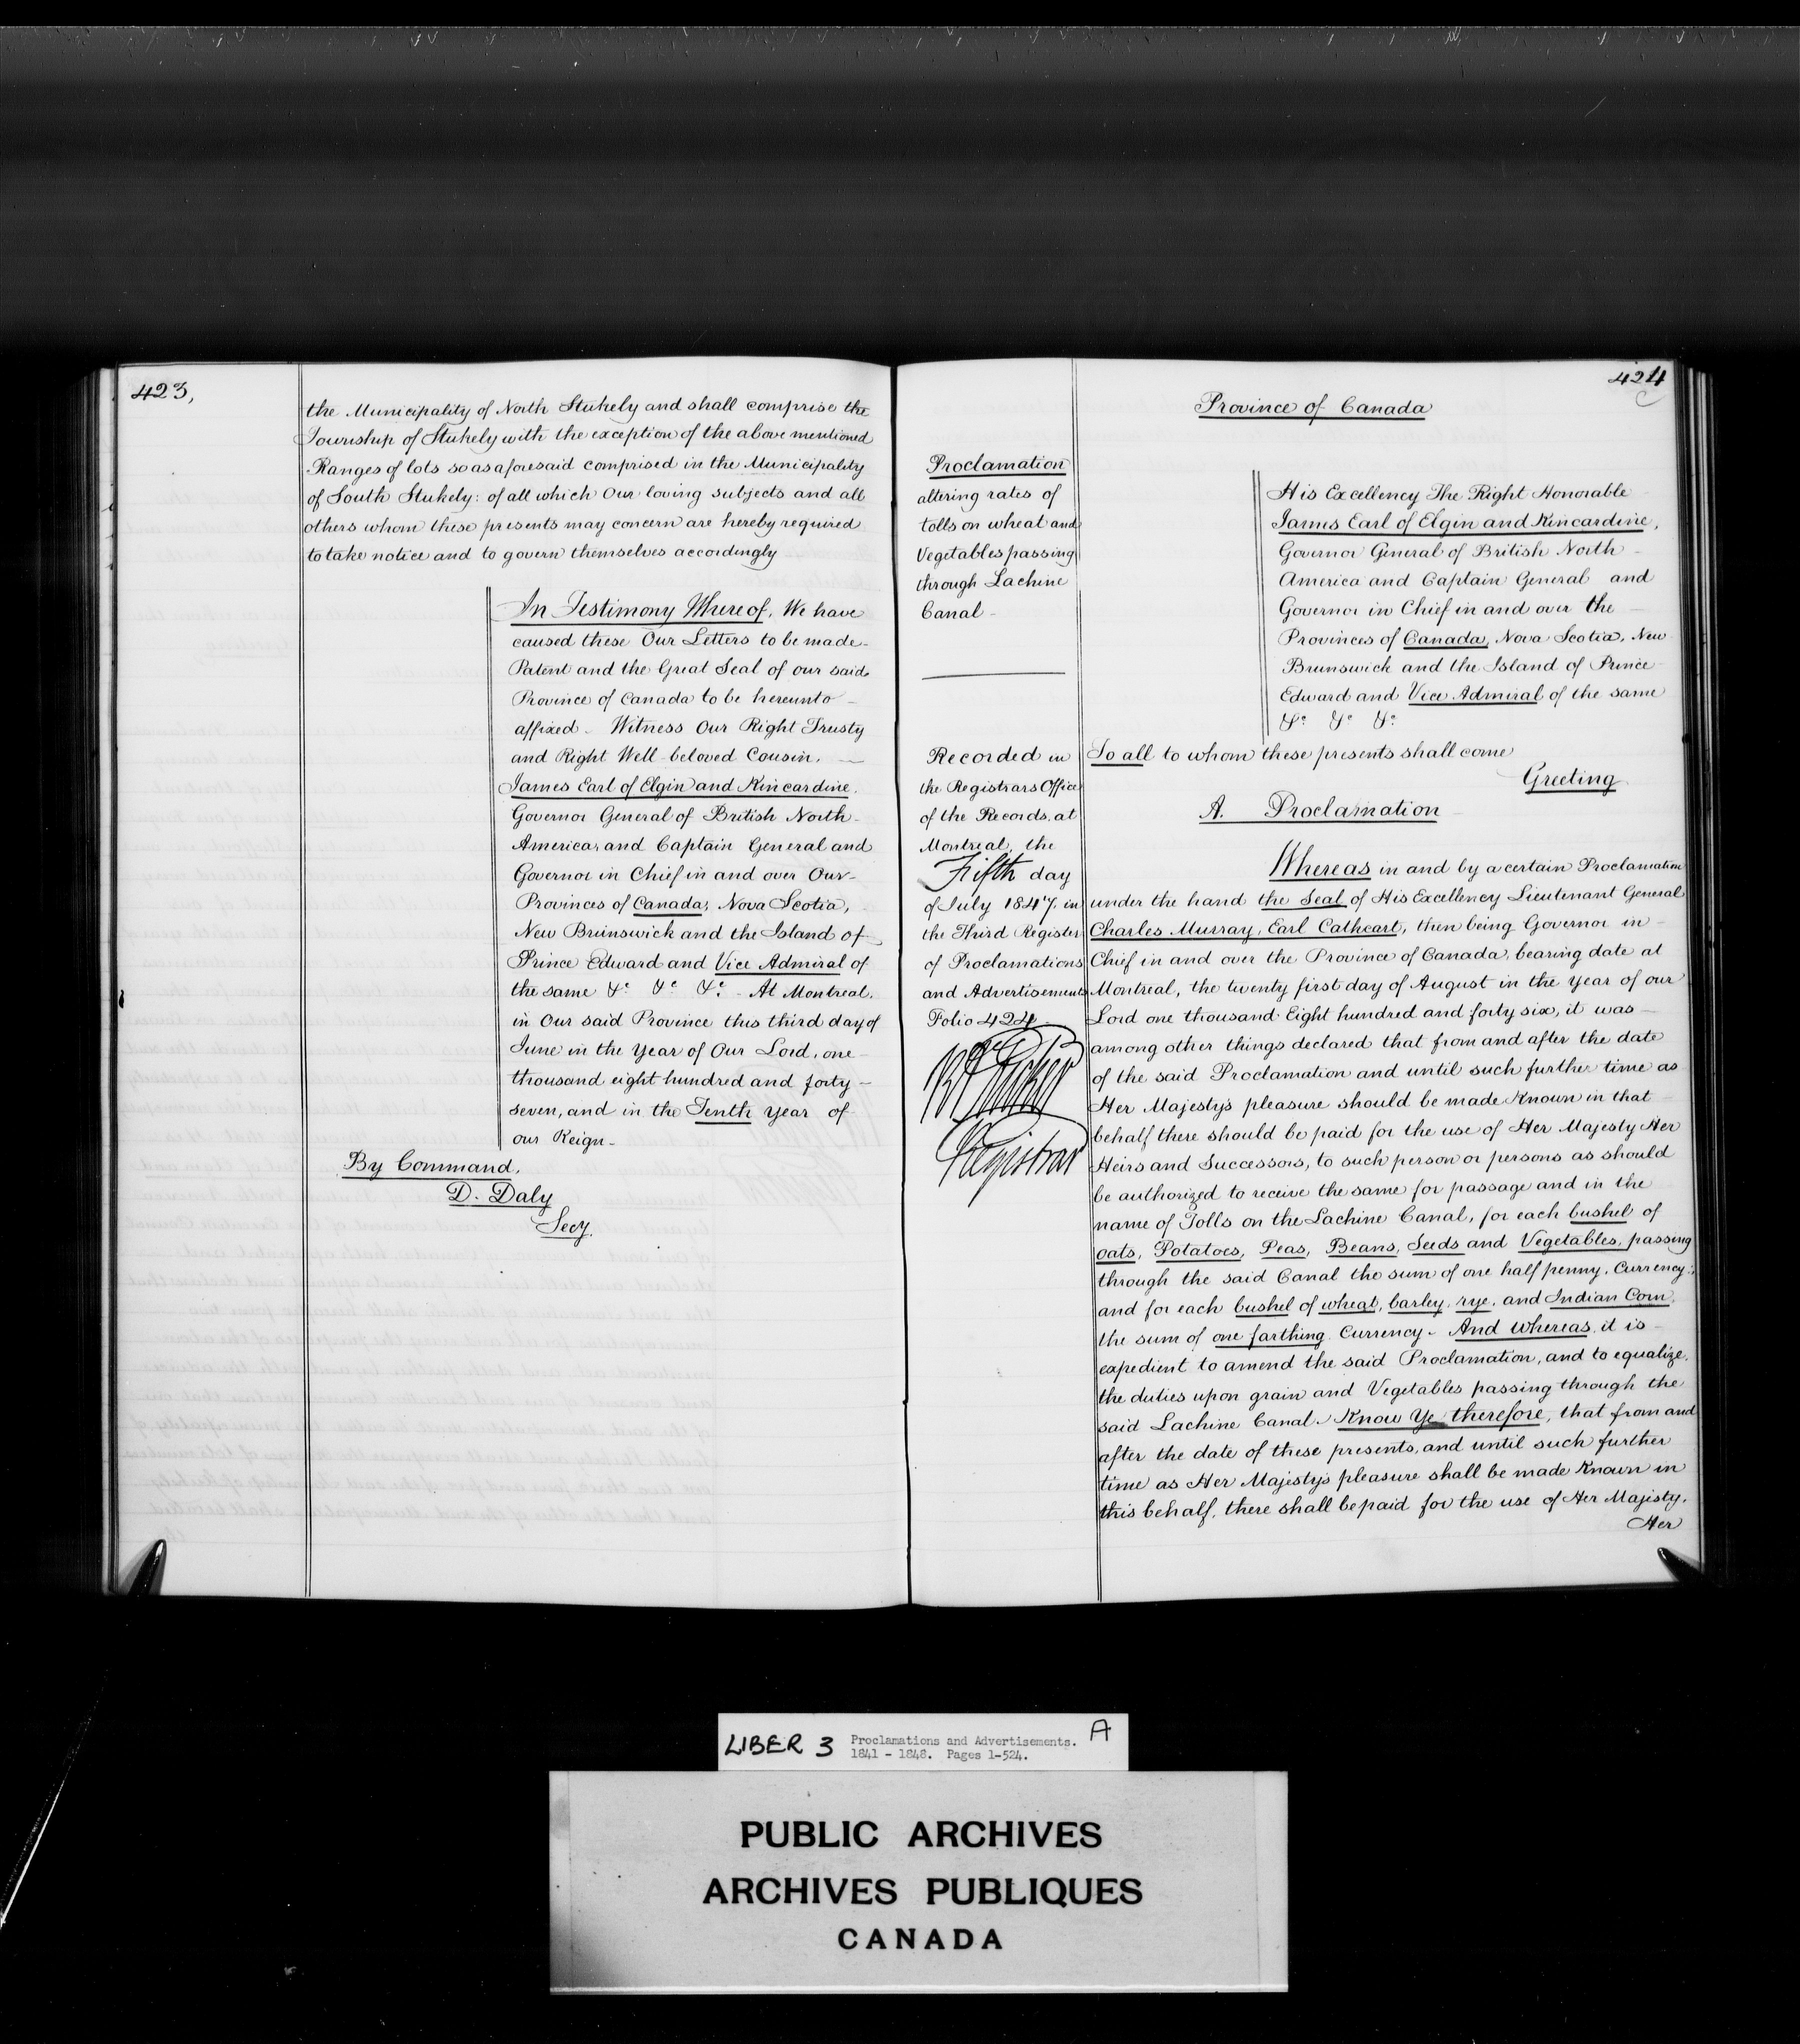 423,
the Municipality of North Stukely and shall comprise the
Township of Stukely with the exception of the above mentioned
Ranges of lots so as aforesaid comprised in the Municipality
of South Stukely: of all which Our loving subjects and all
others whom these presents may concern are hereby required
to take notice and to govern themselves accordingly
In Testimony Whereof, We have
caused these Our Letters to be made
Patent and the Great Seal of our said
Province of Canada to be hereunto
affixed - Witness Our Right Trusty
and Right Well-beloved Cousin,
James Earl of Elgin and Kincardine,
Governor General of British North
America, and Captain General and
Governor in Chief in and over Our
Provinces of Canada, Nova Scotia,
New Brunswick and the Island of
Prince Edward and Vice Admiral of
the same &c &c &c - At Montreal,
in Our said Province this third day of
June in the Year of Our Lord, one
thousand eight hundred and forty
seven, and in the Tenth Year of
our Reign -
By Command,
D. Daly
Secy.
424
Province of Canada
Proclamation
altering rates of
tolls on wheat and
Vegetables passing
through Lachine
Canal -
Recorded in
the Registrars Office
of the Records, at
Montreal, the
Fifth day
of July 1847. in
the Third Register
of Proclamations
and Advertisements
Folio 424.
Registrar
His Excellency The Right Honorable
James Earl of Elgin and Kincardine,
Governor General of British North
America and Captain General and
Governor in Chief in and over the
Provinces of Canada, Nova Scotia, New
Brunswick and the Island of Prince
Edward and Vice Admiral of the same
&c &c &c
To all to whom these presents shall come
Greeting
A. Proclamation
Whereas in and by a certain Proclamation
under the hand the Seal of His Excellency Lieutenant General
Charles Murray, Earl Cathcart, then being Governor in
Chief in and over the Province of Canada, bearing date at
Montreal, the twenty first day of August in the Year of our
Lord one thousand Eight hundred and forty six, it was
among other things declared that from and after the date
of the said Proclamation and until such further time as
Her Majesty's pleasure should be made Known in that
behalf there should be paid for the use of Her Majesty Her
Heirs and Successors, to such person or persons as should
be authorized to receive the same for passage and in the
name of Tolls on the Lachine Canal, for each bushel of
oats, Potatoes, Peas, Beans, Seeds and Vegetables, passing
through the said Canal the sum of one half penny, Currency;
and for each bushel of wheat, barley, rye, and Indian Corn,
the sum of one farthing Currency - And whereas it is
expedient to amend the said Proclamation, and to equalize,
the duties upon grain and Vegetables passing through the
said Lachine Canal. Know Ye therefore, that from and
after the date of these presents, and until such further
time as Her Majesty's pleasure shall be made Known in
this behalf, there shall be paid for the use of Her Majesty,
Her
LIBER 3 Proclamations and Advertisements. A
1841 - 1848. Pages 1-524.
PUBLIC ARCHIVES
ARCHIVES PUBLIQUES
CANADA